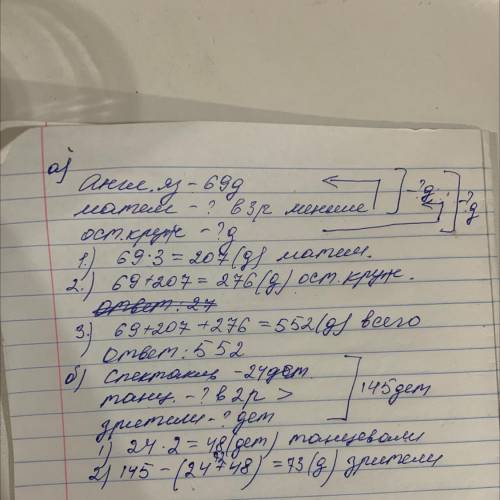 а)
Англ. яз - 69д
матем - ? в 3р меньше -?д
ост. круж - ?д -?д
1.) 69·3 = 207(д) матем.
2.) 69+207 = 276(д) ост. круж.
ответ: 27
3.) 69+207+276 = 552(д) всего
ответ: 552
б) Спектакль - 24дет.
танц. - ? в 2р > 145дет
зрители - ? дет
1) 24·2 = 48(дет) танцевали
2) 145 - (24+48) = 73(д) зрители